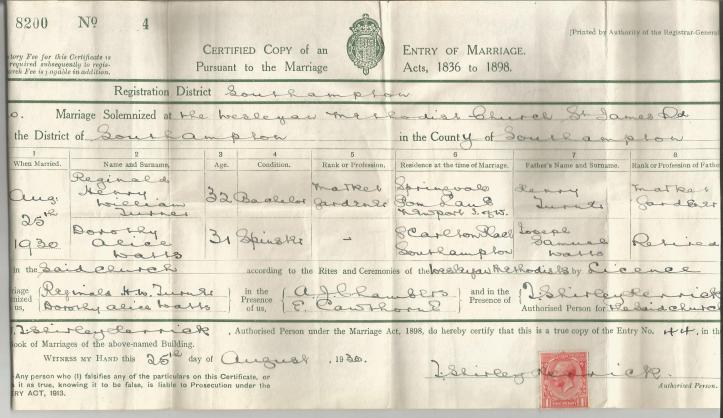 8200 No 4
[Printed by Authority of the Registrar-General
tory Fee for this Certificate is
required subsequently to regis-
arch Fee is payable in addition.
CERTIFIED COPY of an ENTRY OF MARRIAGE.
Pursuant to the Marriage Acts, 1836 to 1898.
Registration District Southampton
o. Marriage Solemnized at the Wesleyan Methodist Church St James Rd
the District of Southampton in the County of Southampton
1 2 3 4 5 6 7 8
When Married. Name and Surname. Age. Condition. Rank or Profession. Residence at the time of Marriage. Father's Name and Surname. Rank or Profession of Father
Aug. 25th 1930
Reginald Henry William Turner 32 Bachelor Market Gardener Springvale Newport I. of W. Henry Turner Market Gardener
Dorothy Alice Watts 31 Spinster – Carlton Place Southampton Joseph Samuel Watts Retired
in the Said Church according to the Rites and Ceremonies of the Wesleyan Methodists by Licence
riage Reginald H.W. Turner in the A. J. Chambers and in the T. Shirley Herrick
nized us, Dorothy Alice Watts Presence of us, E. Cawthorne Presence of Authorised Person for the Said Church
T. Shirley Herrick, Authorised Person under the Marriage Act, 1898, do hereby certify that this is a true copy of the Entry No. 44, in the
ook of Marriages of the above-named Building.
WITNESS MY HAND this 25th day of August, 1930.
T. Shirley Herrick.
Authorised Person.
Any person who (1) falsifies any of the particulars on this Certificate, or
s it as true, knowing it to be false, is liable to Prosecution under the
ERY ACT, 1913.